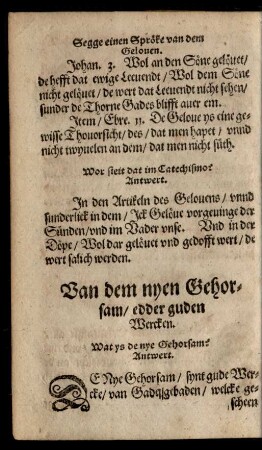 Segge einen Spröke van dem
Gelouen.
Johan. 3. Wol an den Söne gelöuet/
de hefft dat ewige Leeuendt / Wol dem Söne
nicht gelöuet / de wert dat Leeuendt nicht sehen/
sunder de Thorne Gades blifft auer em.
Item / Ebre. 11. De Geloue ys eine ge-
wisse Thouorsicht / des / dat men hapet / vnnd
nicht twyuelen an dem / dat men nicht süth.
Wor steit dat im Catechismo?
Antwert.
In den Artikeln des Gelouens / vnnd
sunderlick in dem / Ick Gelöue vorgeuinge der
Sünden / vnd im Vader vnse. Vnd in der
Döpe / Wol dar gelöuet vnd gedofft wert / de
wert salich werden.
Van dem nyen Gehor-
sam / edder guden
Wercken.
Wat ys de nye Gehorsam?
Antwert.
DE Nye Gehorsam / synt gude Wer-
cke / van Gad gebaden / welcke ge-
scheen